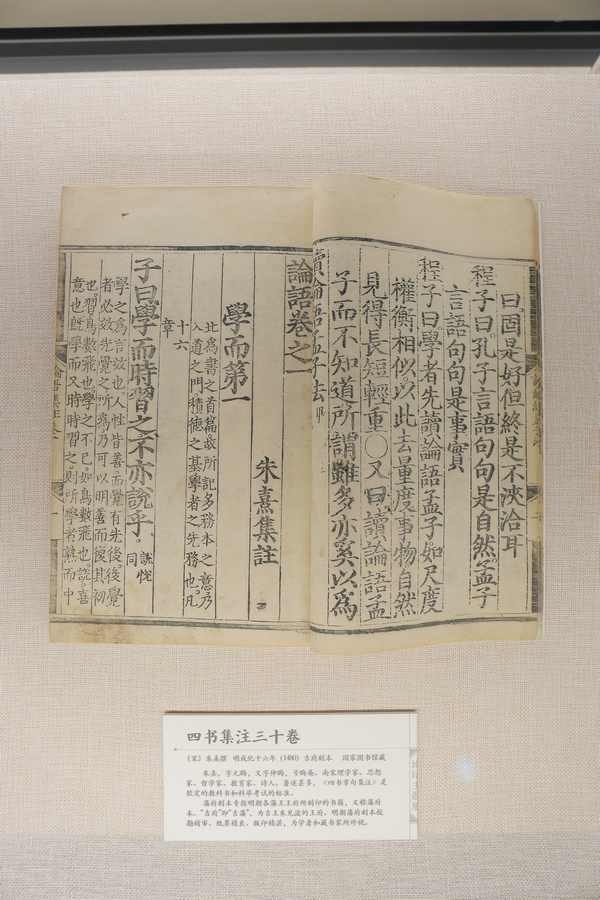 曰固是好但終是不浹洽耳
程子曰孔子言語句句是自然孟子
言語句句是事實
程子曰學者先讀論語孟子如尺度
權衡相似以此去量度事物自然
見得長短輕重〇又曰讀論語孟
子而不知道所謂雖多亦奚以爲
讀論語孟子法畢
論語卷之一
朱熹集註
學而第一
此爲書之首篇故所記多務本之意乃
入道之門積德之基學者之先務也凡
十六
章
子曰學而時習之不亦說乎
說悅
同
學之爲言效也人性皆善而覺有先後後覺
者必效先覺之所爲乃可以明善而復其初
也習鳥數飛也學之不已如鳥數飛也說喜
意也旣學而又時時習之則所學者熟而中
四书集注三十卷
（宋）朱熹撰 明成化十六年（1480）吉府刻本 国家图书馆藏
朱熹，字元晦，又字仲晦，号晦庵。南宋理学家、思想
家、哲学家、教育家、诗人。著述甚多，《四书章句集注》是
钦定的教科书和科举考试的标准。
藩府刻本专指明朝各藩王王府所刻印的书籍，又称藩府
本。“吉府”即“吉藩”，为吉王朱见浚的王府。明朝藩府刻本校
勘精审、纸墨精良、版印精湛，为学者和藏书家所珍视。